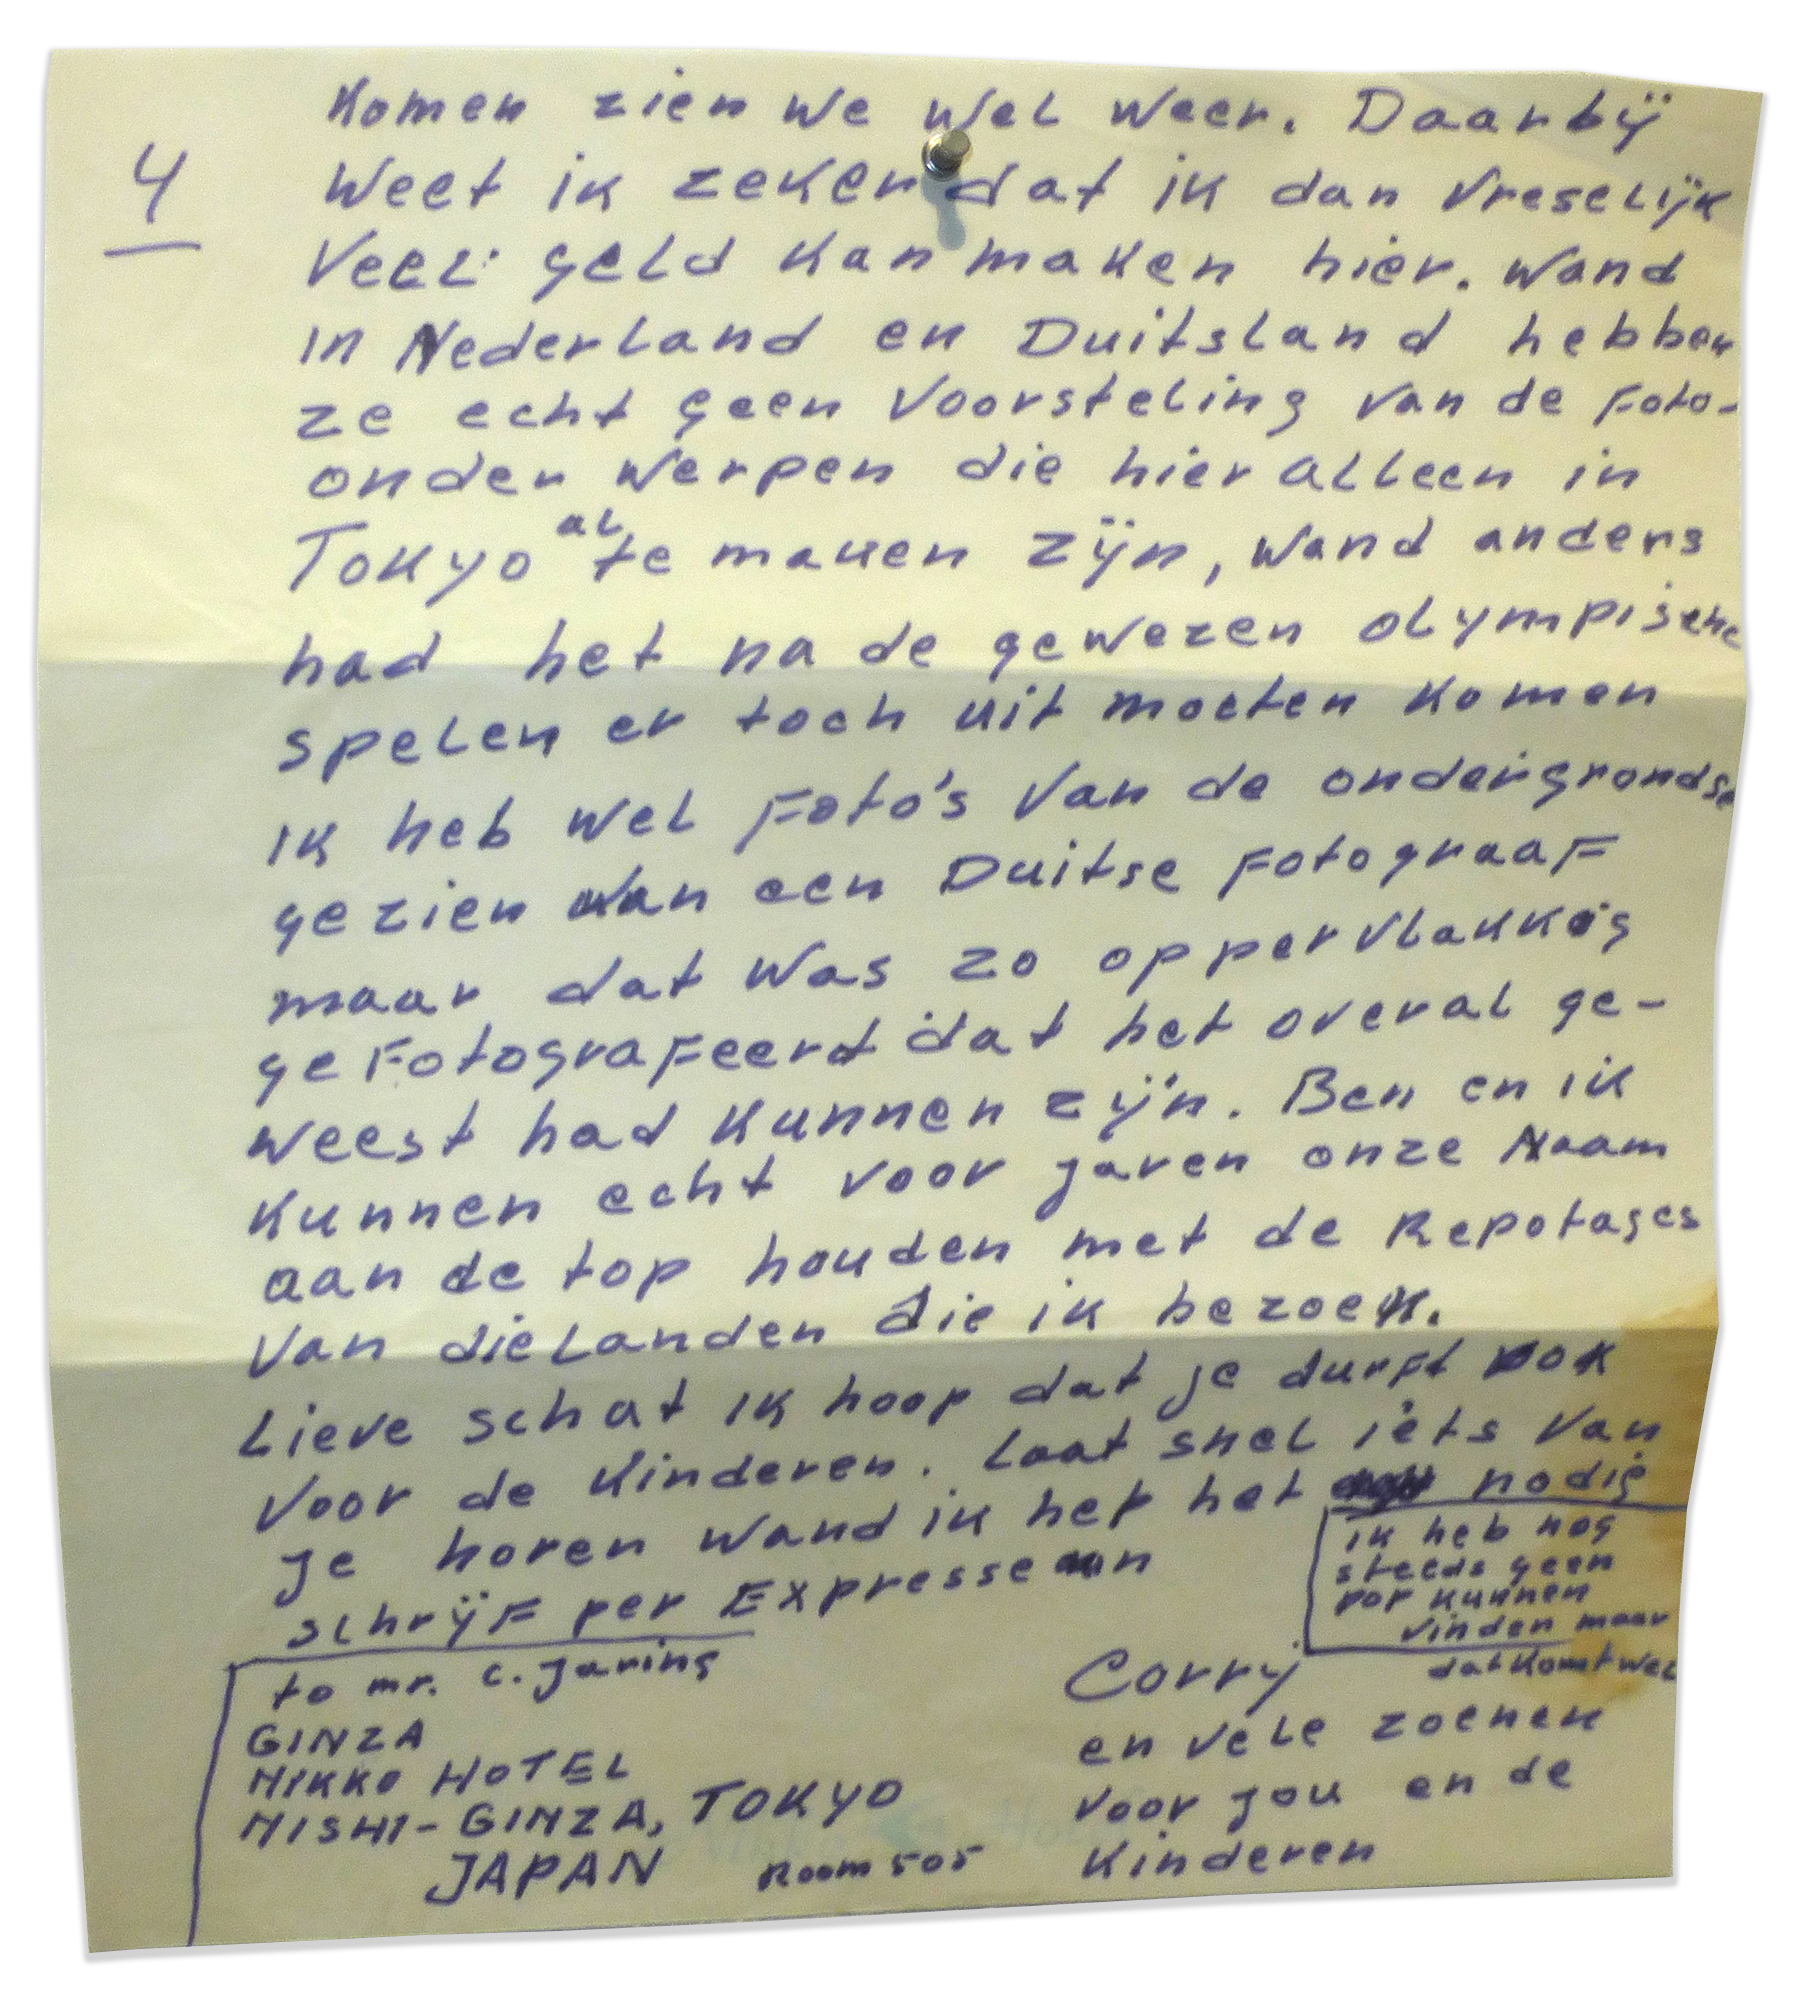 4
komen zien we wel weer. Daarbij
weet ik zeker dat ik dan vreselijk
veel geld kan maken hier. wand
in Nederland en Duitsland hebben
ze echt geen voorsteling van de Foto-
onder werpen die hier alleen in
Tokyo al te maken zijn, wand anders
had het na de gewezen olympische
spelen er toch uit moeten komen
ik heb wel Foto's van de ondergrondse
gezien van een Duitse Fotograaf
maar dat was zo oppervlakkig
gefotografeerd dat het overal ge-
weest had kunnen zijn. Ben en ik
kunnen echt voor jaren onze Naam
aan de top houden met de Repotages
van die landen die ik bezoek.
Lieve schat ik hoop dat je durft ook
voor de kinderen. Laat snel iets van
je horen wand ik heb het nodig
schrijf per Expresse
ik heb nog
steeds geen
pop kunnen
vinden maar
dat komt wel
to mr. c. Jaring
GINZA
NIKKO HOTEL
NISHI-GINZA, TOKYO
JAPAN Room 505
Corry
en vele zoenen
voor jou en de
kinderen